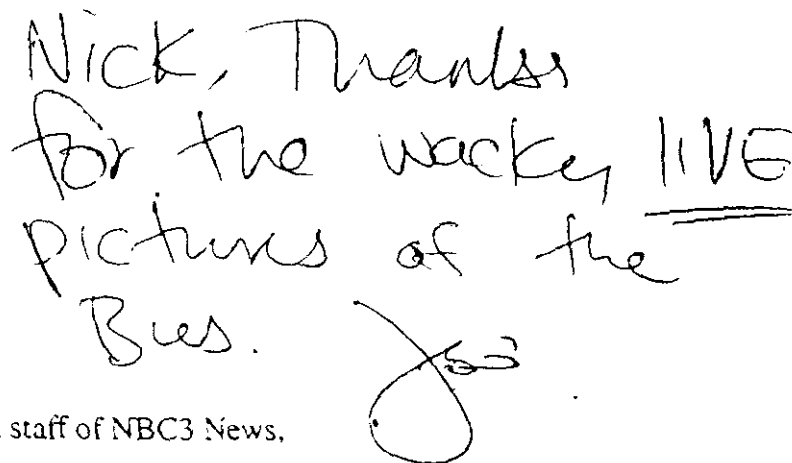 Nick, Thanks
for the wacky LIVE
pictures of the
Bus.
staff of NBC3 News,